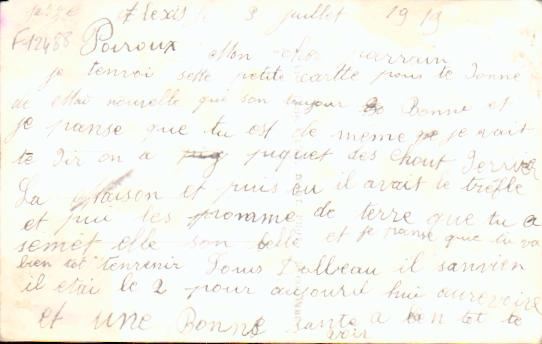 Alexis 3 juillet 1919
F-12488
Poiroux Mon cher parrain
je tenvoi sette petite cartte pour te donne
de Moi nouvelle que son toujour Bonne et
je panse que tu est de meme je vait
te dir on a piquet des chout derrier
La Maison et puis ou il avait le trefle
et pui les promme de terre que tu a
semet elle son belle et je panse que tu va
bien tot tenrenir Louis Dalleau il sanvien
il etai le 2 pour aujourd hui aurevoire
et une Bonne sante a bien tot te
voir